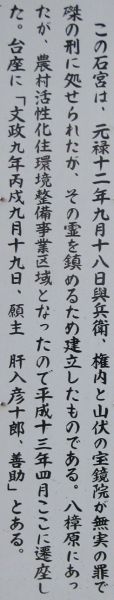 この石宮は、元禄十二年九月十八日與兵衛、権内と山伏の宝鏡院が無実の罪で
磔の刑に処せられたが、その霊を鎮めるため建立したものである。八樟原にあっ
たが、農村活性化住環境整備事業区域となったので平成十三年四月ここに遷座し
た。台座に「文政九年丙戌九月十九日、願主　肝入彦十郎、善助」とある。